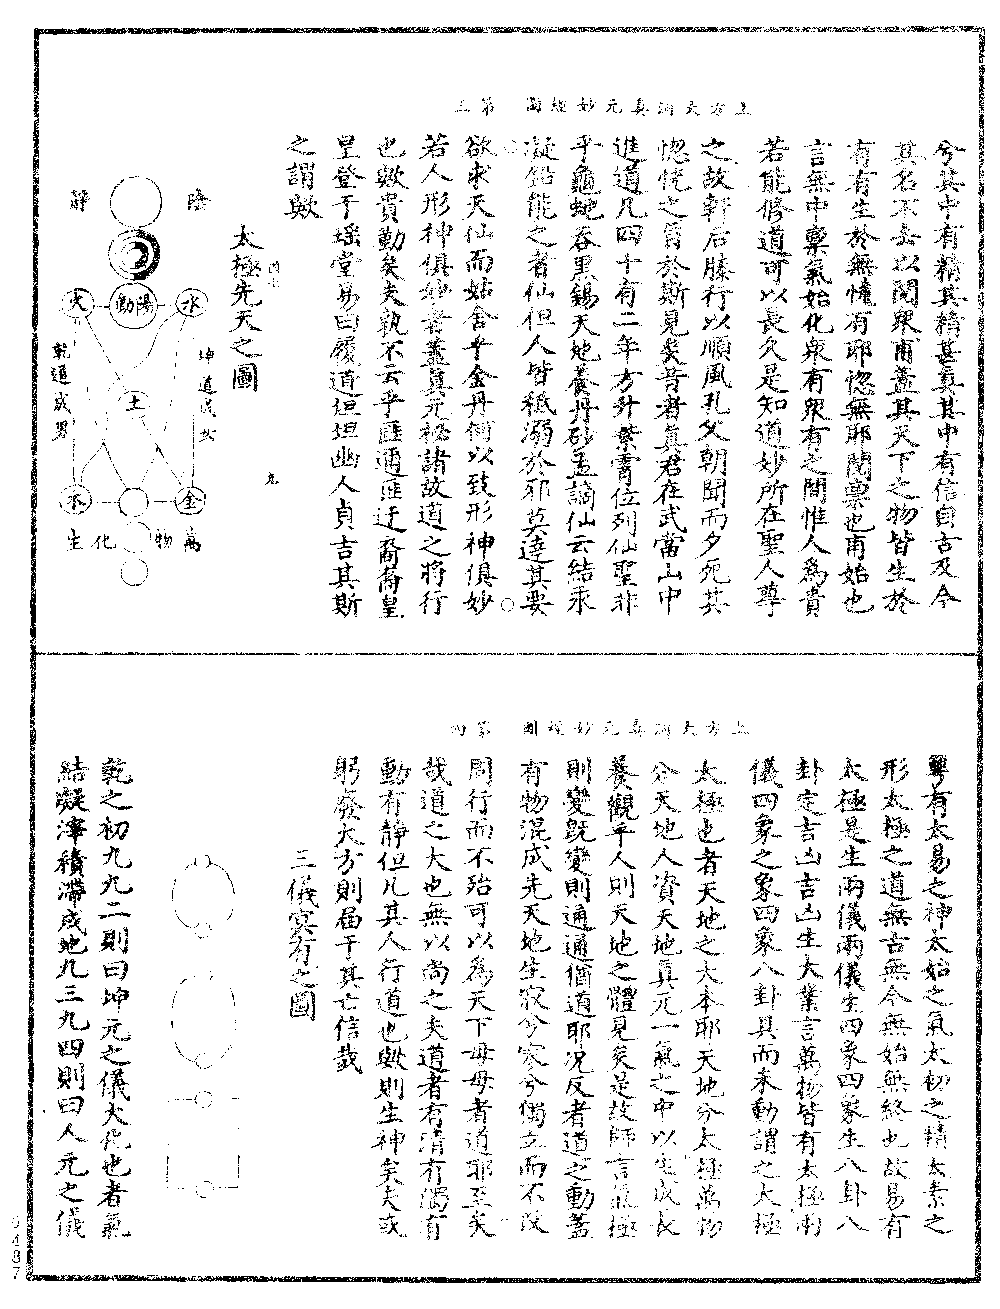 上方大洞真元妙經圖　第三
兮其中有精其精甚真其中有信自古及今
其名不去以閱眾甫蓋其天下之物皆生於
有有生於無惚有耶惚無耶閱稟也甫始也
言無中稟氣始化眾有眾有之間惟人為貴
若能修道可以長久是知道妙所在聖人尊
之故軒后膝行以順風孔父朝聞而夕死其
惚恍之旨於斯見矣昔者真君在武當山中
進道凡四十有二年方升紫霄位列仙聖非
乎龜蛇吞黑錫天地養丹砂孟謫仙云結汞
凝鉛能之者仙但人皆秪溺於邪莫達其要
欲求天仙而姑舍乎金丹何以致形神俱妙
若人形神俱妙者蓋真元祕諸故道之將行
也歟貴勤矣夫孰不云乎匪邇匪迂裔裔皇
皇登于瑤堂易曰履道坦坦幽人貞吉其斯
之謂歟
太極先天之圖
陰
靜
陽動
水
火
土
金
木
坤道成女
乾道成男
萬物化生
上方大洞真元妙經圖　第四
粵有太易之神太始之氣太初之精太素之
形太極之道無古無今無始無終也故易有
太極是生兩儀兩儀生四象四象生八卦八
卦定吉凶吉凶生大業言萬物皆有太極兩
儀四象之象四象八卦具而未動謂之太極
太極也者天地之大本耶天地分太極萬物
分天地人資天地真元一氣之中以生成長
養觀乎人則天地之體見矣是故師言氣極
則變既變則通通猶道耶況反者道之動蓋
有物混成先天地生寂兮寥兮獨立而不改
周行而不殆可以為天下母母者道耶至矣
哉道之大也無以尚之夫道者有清有濁有
動有靜但凡其人行道也歟則生神矣夫或
躬廢大方則屆于其亡信哉
三儀冥有之圖
乾之初九九二則曰坤元之儀大化也者氣
結凝滓積滯成地九三九四則曰人元之儀